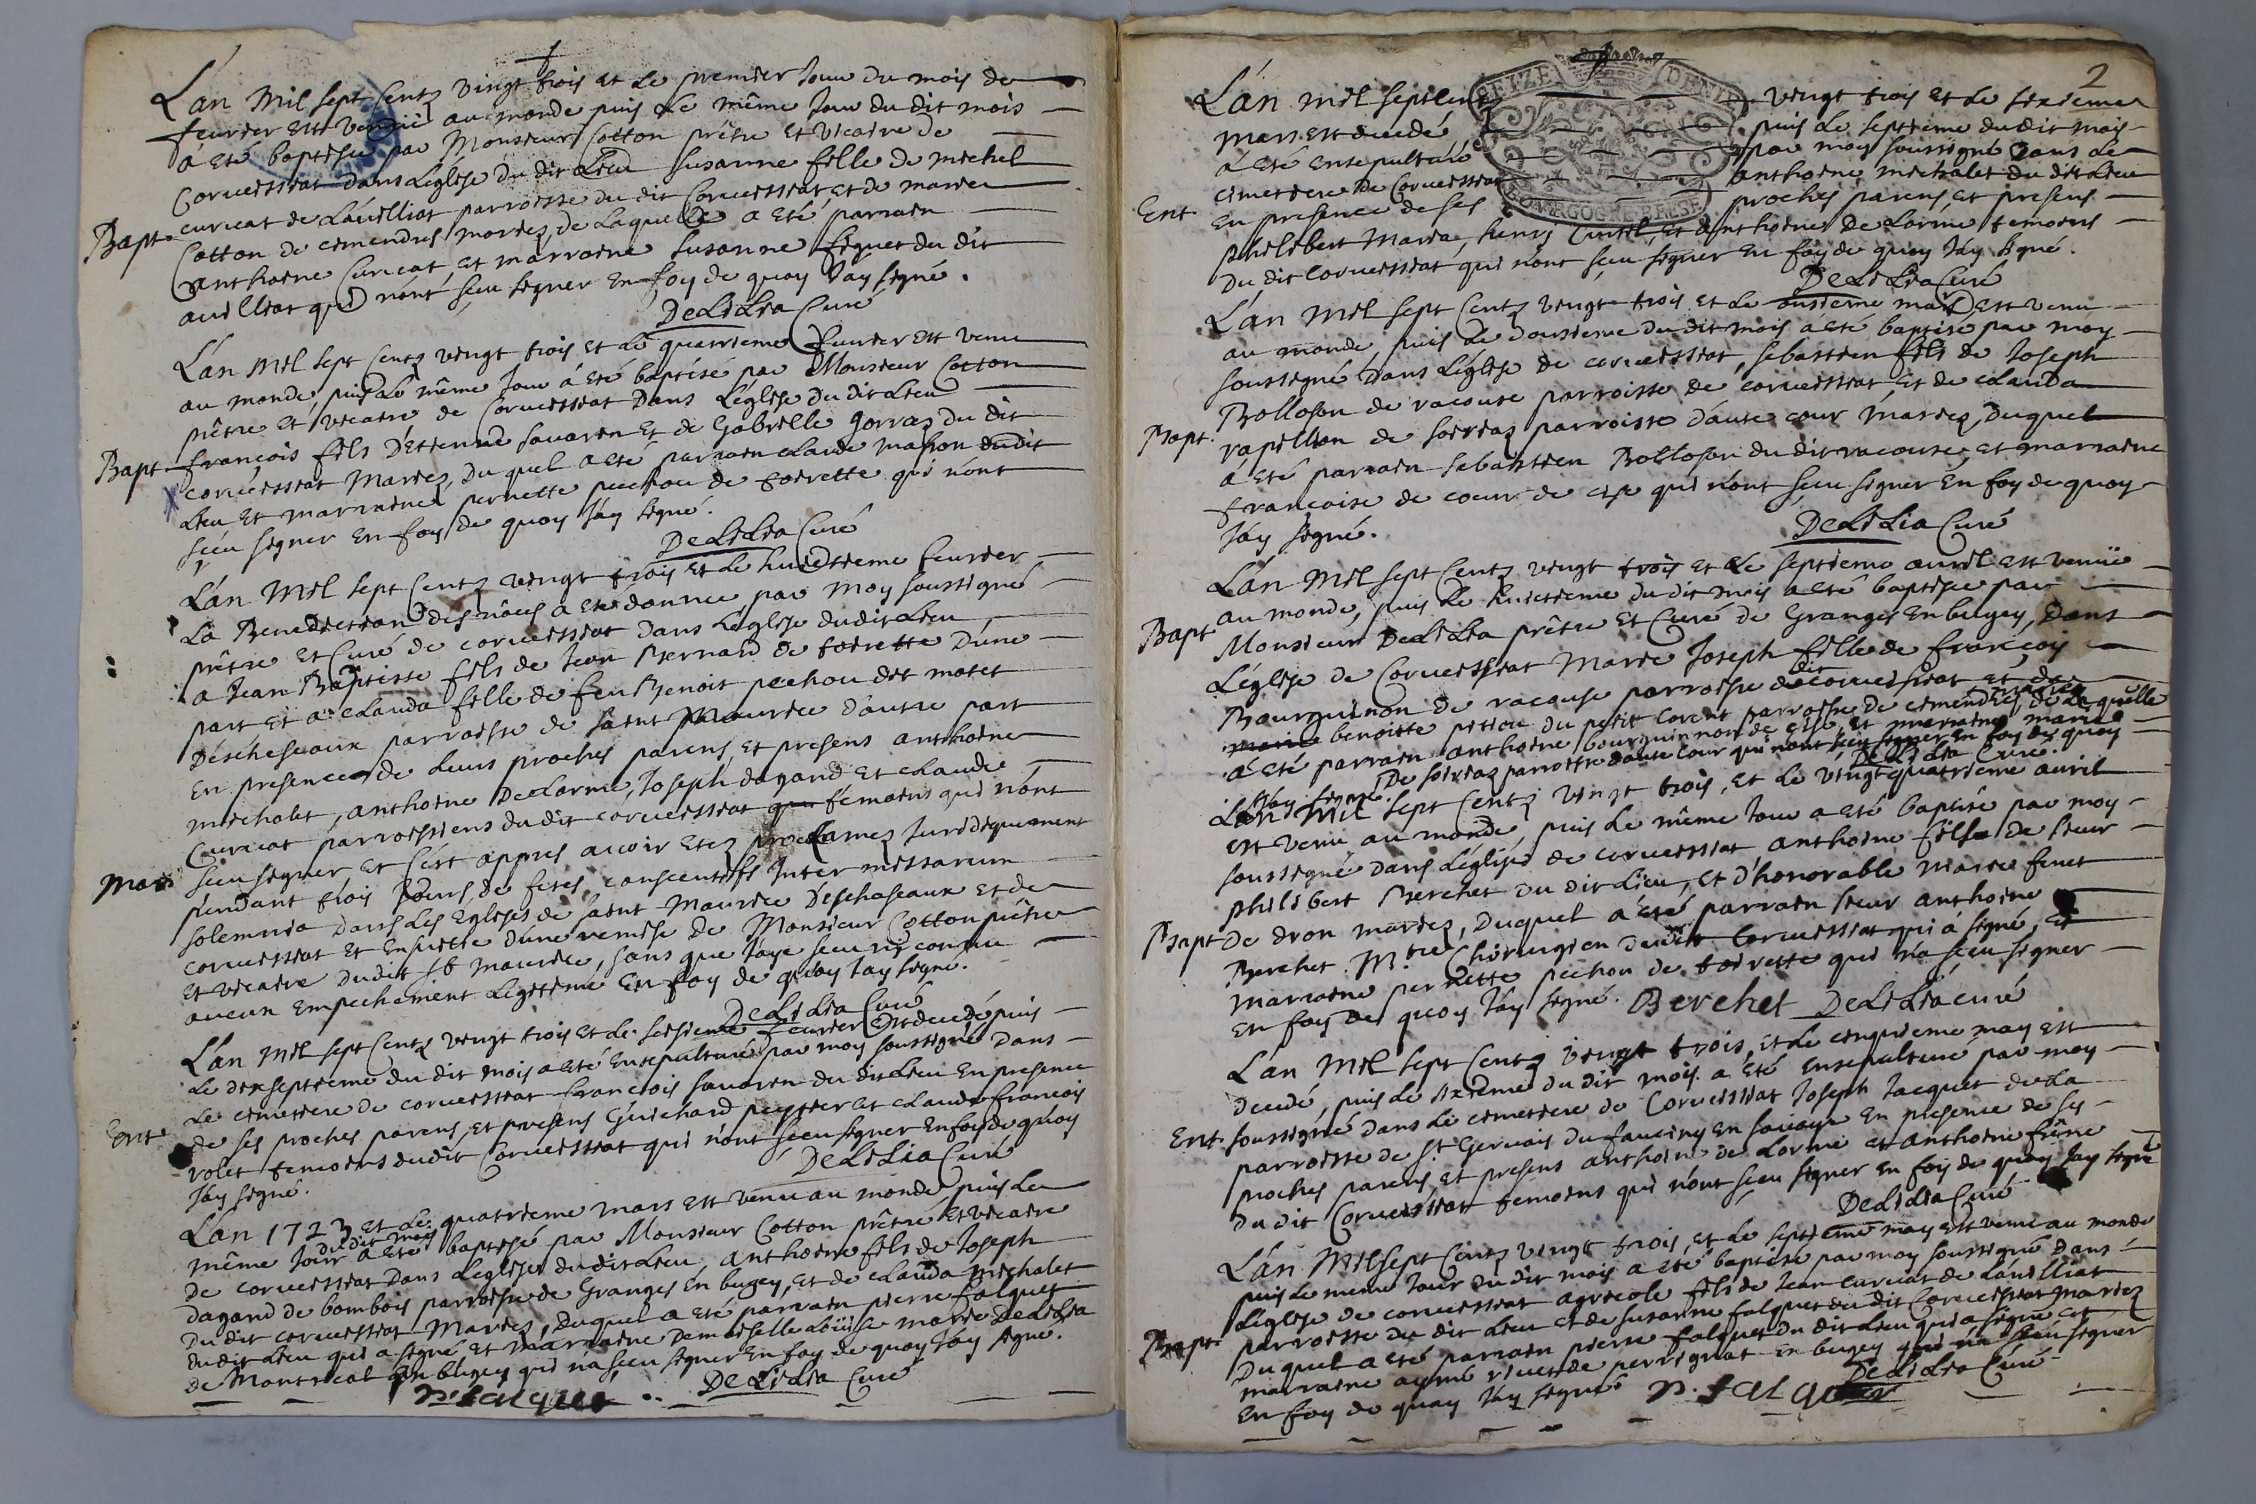 L'an mil sept Centz vingt trois et le premier jour du mois de
feurier est venüe au monde puis le même jour du dit mois
à eté baptisée par Monsieur Cotton prêtre et vicaire de
Corueissiat dans L'église du dit Lieu susanne fille de michel
Bapt. curicat de Lauelliat parroisse du dit Corueissiat, et de marie
Cotton de cimendres mariez, de laquelle a eté parrain
anthoine Curicat, et marraine susanne fiquet du dit
auelliat qui n'ont sçeu signer en foy de quoy j'ay signé.
DeLiLia Curé
L'an mil sept Centz vingt trois et le quatrieme feurier est venu
au monde, puis le même jour à eté baptisé par Monsieur Cotton
prêtre et vicaire de Corueissiat dans L'église du dit Lieu
Bapt françois fils d'Etienne sauarin et de Gabrielle gorraz du dit
corueissiat mariez, du quel a eté parrain claude maþon dudit
Lieu et marraine pernette puchou de toirette qui n'ont
sçeu signer en foy de quoy j'ay signé.
DeLiLia Curé
L'an mil sept Centz vingt trois et le huictieme feurier
La Benediction des nôces a eté donnée par moy soussigné
prêtre et Curé de corueissiat dans L'église dudit Lieu
a Jean Baptiste fils de Jean Bernard de toirette d'une
part et a clauda fille de feu Benoit pechou des motet
Déscheseaux parroisse de saint maurice d'autre part
En presence de Leurs proches parens, et presens anthoine
michalet, anthoine DeLorme, Joseph dagand et claude
Curicat parroissiens du dit corueissiat qui témoins qui n'ont
Mar. sçeu signer et c'est appres auoir etez proclamez juridiquement
pendant trois jours, de fetes, consecutifs inter missarum
solemnia dans Les Eglises de saint maurice Déschaseaux et de
corueissiat et Ensuitte d'une remise de Monsieur Cotton prêtre
et vicaire dudit st maurice, sans que j'aye sceu ny connu
aucun Empechement Legitime En foy de quoy j'ay signé.
DeLiLia Curé
L'an mil sept Centz vingt trois et le seisieme feurier Est decedé puis
le dixseptieme du dit mois a eté Ensepulturé par moy soussigné Dans
le cimetiere de corueissiat francois sauarin du dit Lieu En presence
Ent. de ses proches parens, et presens Guichard peyssier et claude francois
volet temoins dudit Corueissiat qui n'ont sçeu signer En foy de quoy
j'ay signé.
DeLiLia Curé
L'an 1723 et le quatrieme mars est venu au monde, puis le
même jour du dit mois a eté baptisé par Monsieur Cotton prêtre et vicaire
de corueissiat Dans L'eglise du dit Lieu, anthoine fils de Joseph
dagand de bombois parroisse de Granges En bugey, et de claude michalet
du dit corueissiat Mariez, Duquel a eté parrain pierre falquet
du dit Lieu qui a signé et marraine Demoiselle Loüise marie DeLiLia
de Montreal En bugey qui n'a sçeu signer En foy de quoy j'ay signé.
p. falquet DeLiLia Curé
2
L'an mil sept centz vingt trois et le sixieme
mars est decedé puis le septieme du dit mois
à eté Ensepulturé par moy soussigné Dans Le
cimetiere de Corueissiat anthoine michalet du dit Lieu
Ent. En presence de ses proches parens, et presens
philibert Maria, henry Curtil, et anthoine DeLorme temoins
du dit Corueissiat qui n'ont sçeu signer En foy de quoy j'ay signé.
DeLiLia Curé
L'an mil sept Centz vingt trois et le onsieme mars est venu
au monde, puis le dousieme du dit mois à eté baptisé par moy
soussigné Dans L'église de corueissiat, sebastien fils de Joseph
Bolloson de racouse parroisse de corueissiat et de claude
Bapt. rapillion de soirias parroisse d'aute cour mariez, Duquel
à eté parrain sebastien Bolloson du dit racouse, et marraine
françoise de coeur de cise qui n'ont sçeu signer En foy de quoy
j'ay signé.
DeLiLia Curé
L'an mil sept Centz vingt trois et le septieme auril est venüe
Bapt. au monde, puis le huictieme du dit mois a eté baptisée par
Monsieur DeLiLia prêtre et Curé de Granges En bugey, Dans
L'église de Corueissiat Marie Joseph fille de françois
Bourquinon de racouse parroisse dudit corueissiat et de
marie benoitte petiou du petit corent parroisse de cimendres, mariez de Laquelle
à eté parrain anthoine bourquinnon de cise, et marraine marie
De soirias parroisse d'aute Cour qui n'ont sçeu signer En foy de quoy
j'ay signé. DeLiLia Curé.
L'an mil sept Centz vingt trois, et le vingt quatrieme auril
est venu au monde, puis le même jour a eté baptisé par moy
soussigné Dans L'église de corueissiat anthoine fils de sieur
philibert Berchet du dit Lieu, et d'honorable Marie finet
Bapt de dron mariez, Duquel a eté parrain sieur anthoine
Berchet. M.tre Chirurgien dudit Corueissiat qui à signé, et
marraine pernette pichon de toirette qui n'a sçeu signer
En foy de quoy j'ay signé. Berchet DeLiLia curé
L'an mil sept Centz vingt trois, et le cinquieme may est
decedé, puis le sixieme du dit mois. a eté Ensepulturé par moy
Ent. soussigné dans le cimetiere de Corueissiat Joseph Jacquet de La
parroisse de st Geruais du faucigny En sauoye En presence de ses
proches parens, et presens anthoine de Lorme et anthoine frêne
du dit Corueissiat temoins qui n'ont sçeu signer En foy de quoy j'ay signé
DeLiLia Curé
L'an Mil sept Centz vingt trois, et le septieme may est venu au monde
puis le meme jour du dit mois a eté baptisé par moy soussigné Dans
L'église de corueissiat agricole fils de Jean curicat de Lauelliat
parroisse du dit Lieu et de susanne falquet du dit Corueissiat mariez
Bapt. Duquel a eté parrain pierre falquet du dit Lieu qui a signé et
marraine aymé riuet de perrignat En bugey qui n'a sçeu signer
En foy de quoy j'ay signé. p. falquet DeLiLia Curé